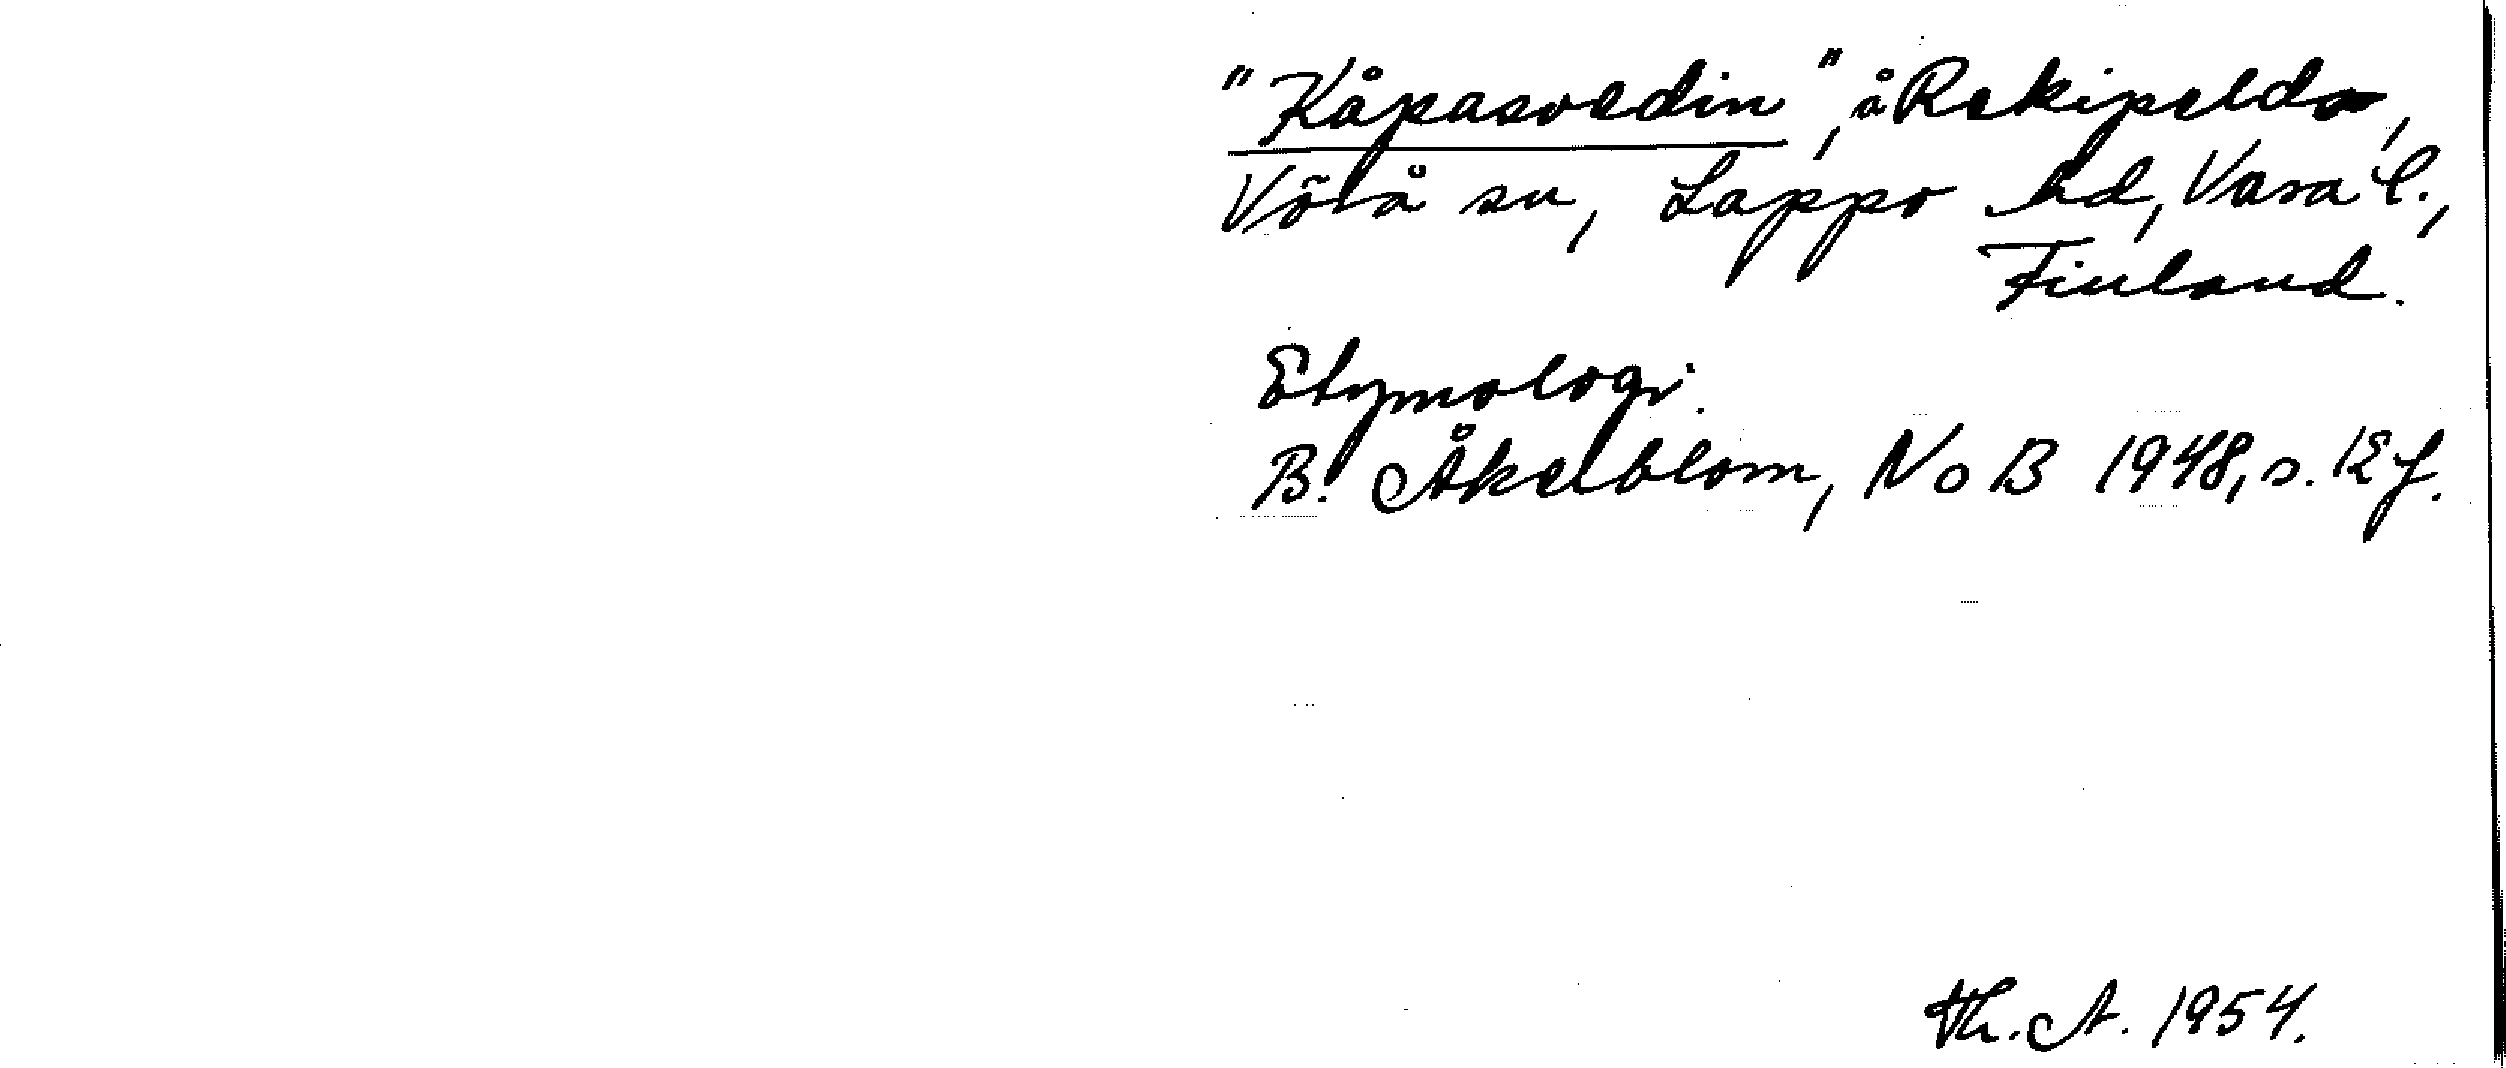 "Kåpasvedin", å Rekipeldo,
Vörå sn, Lappo hd, Vasa l.,
Finland.
Etymologi.
B. Åkerblom, NoB 1948, s. 12 f.
Th. A. 1954.